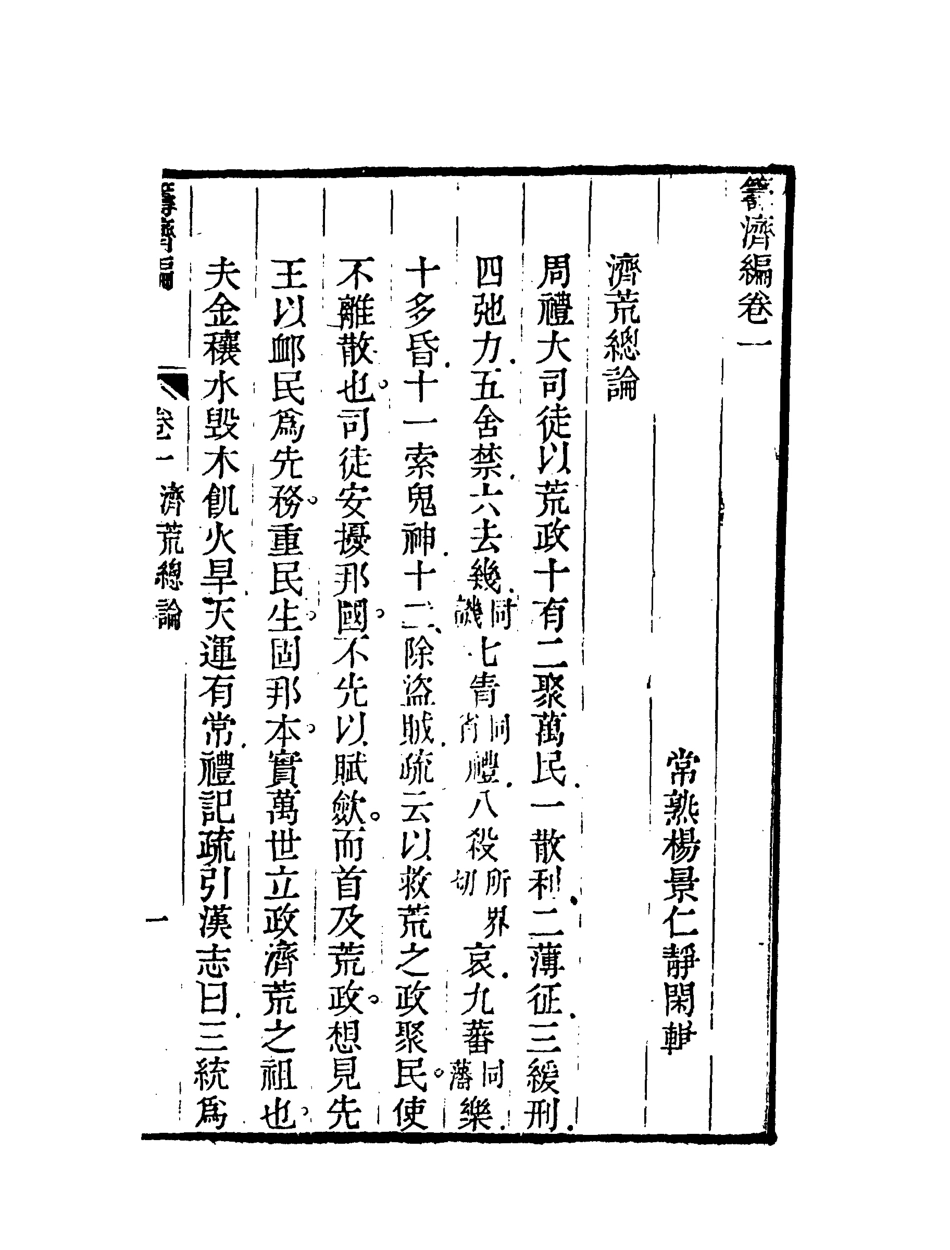 籌濟編卷一
常熟楊景仁靜閑輯
濟荒總論
周禮大司徒以荒政十有二聚萬民一散利二薄征三緩刑
四弛力五舍禁六去幾同譏七眚同省禮八殺所界切哀九蕃同藩樂
十多昏十一索鬼神十二除盜賊疏云以救荒之政聚民使
不離散也司徒安擾邦國不先以賦斂而首及荒政想見先
王以卹民爲先務重民生固邦本實萬世立政濟荒之祖也
夫金穰水毀木飢火旱天運有常禮記疏引漢志曰三統爲
籌濟編
卷一
濟荒總論
一